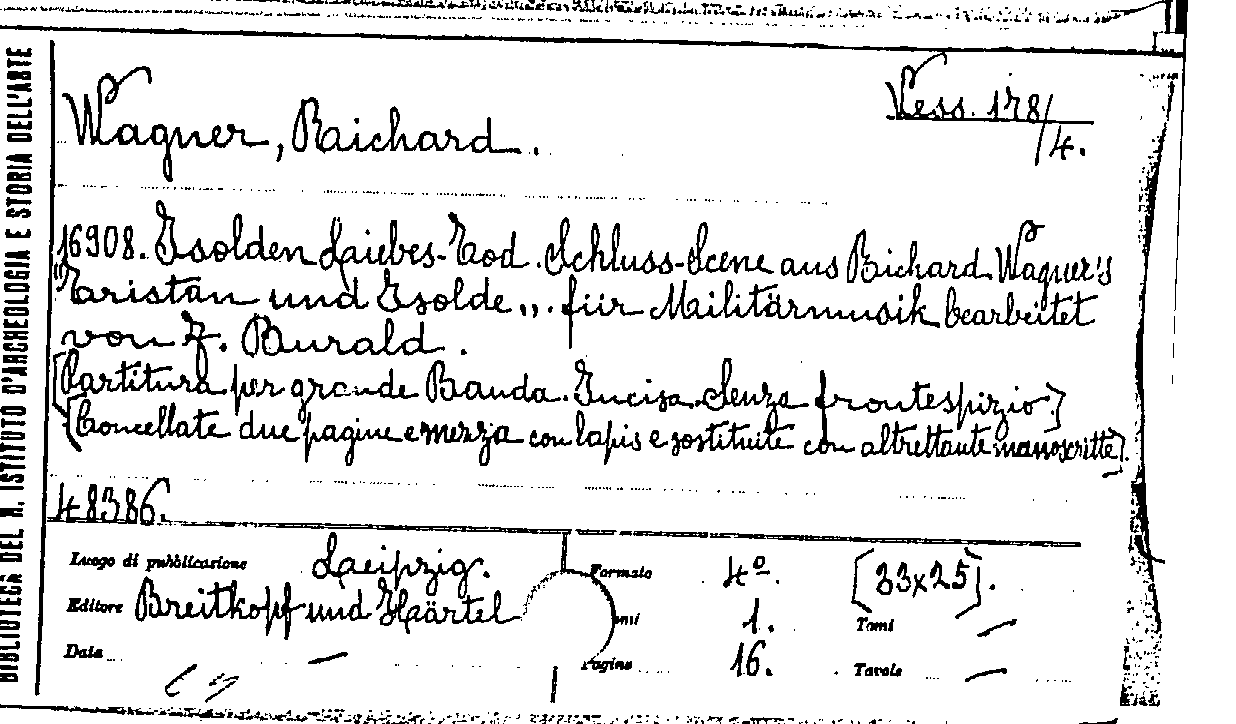 BIBLIOTECA DEL R. ISTITUTO D'ARCHEOLOGIA E STORIA DELL'ARTE
Wagner, Richard.
Vess. 178/4.
16908. Isolden Liebes-Tod. Schluss-Scene aus Richard Wagner's
"Tristan und Isolde„. für Militärmusik bearbeitet
von F. Burald.
[Partitura per grande Banda. Incisa. Senza frontespizio.]
[Cancellate due pagine e mezza con lapis e sostituite con altrettante manoscritte].
48386.
Luogo di pubblicazione Leipzig. Formato 4º. [33x25].
Editore Breitkopf und Härtel 1. Tomi —
Data — Pagine 16. Tavole —